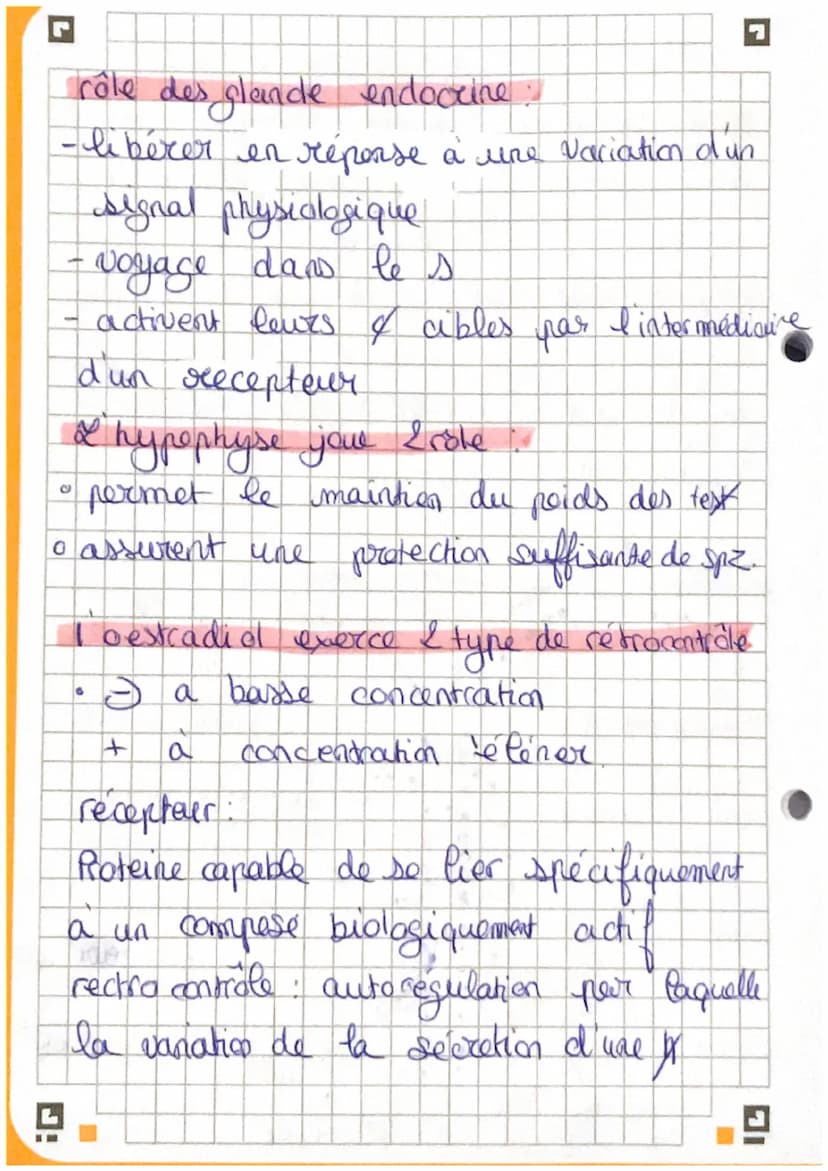 rôle des glande endocrine :
- libérer en réponse à une variation d'un
signal physiologique
- voyage dans le s
- activent leurs ¢ cibles par l'intermédiaire
d'un recepteur
L'hypophyse joue 2 rôle :
° permet le maintien du poids des test
° assurent une protection suffisante de spz.
l'oestradiol exerce 2 type de rétrocontrôle
• ⊖ a basse concentration
+ à concentration
récepteur :
Proteine capable de se lier spécifiquement
à un composé biologiquement actif
rectro contrôle : autorégulation par laquelle
la variation de la sécretion d'une